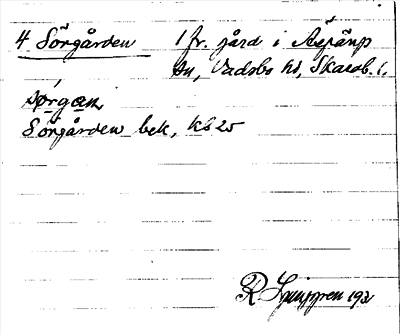 4 Sörgården 1 fr. gård i
sn, Vadsbo hd, Skarab. l.
sørgan
Sörgården bek, KB 25
R Ljunggren 193